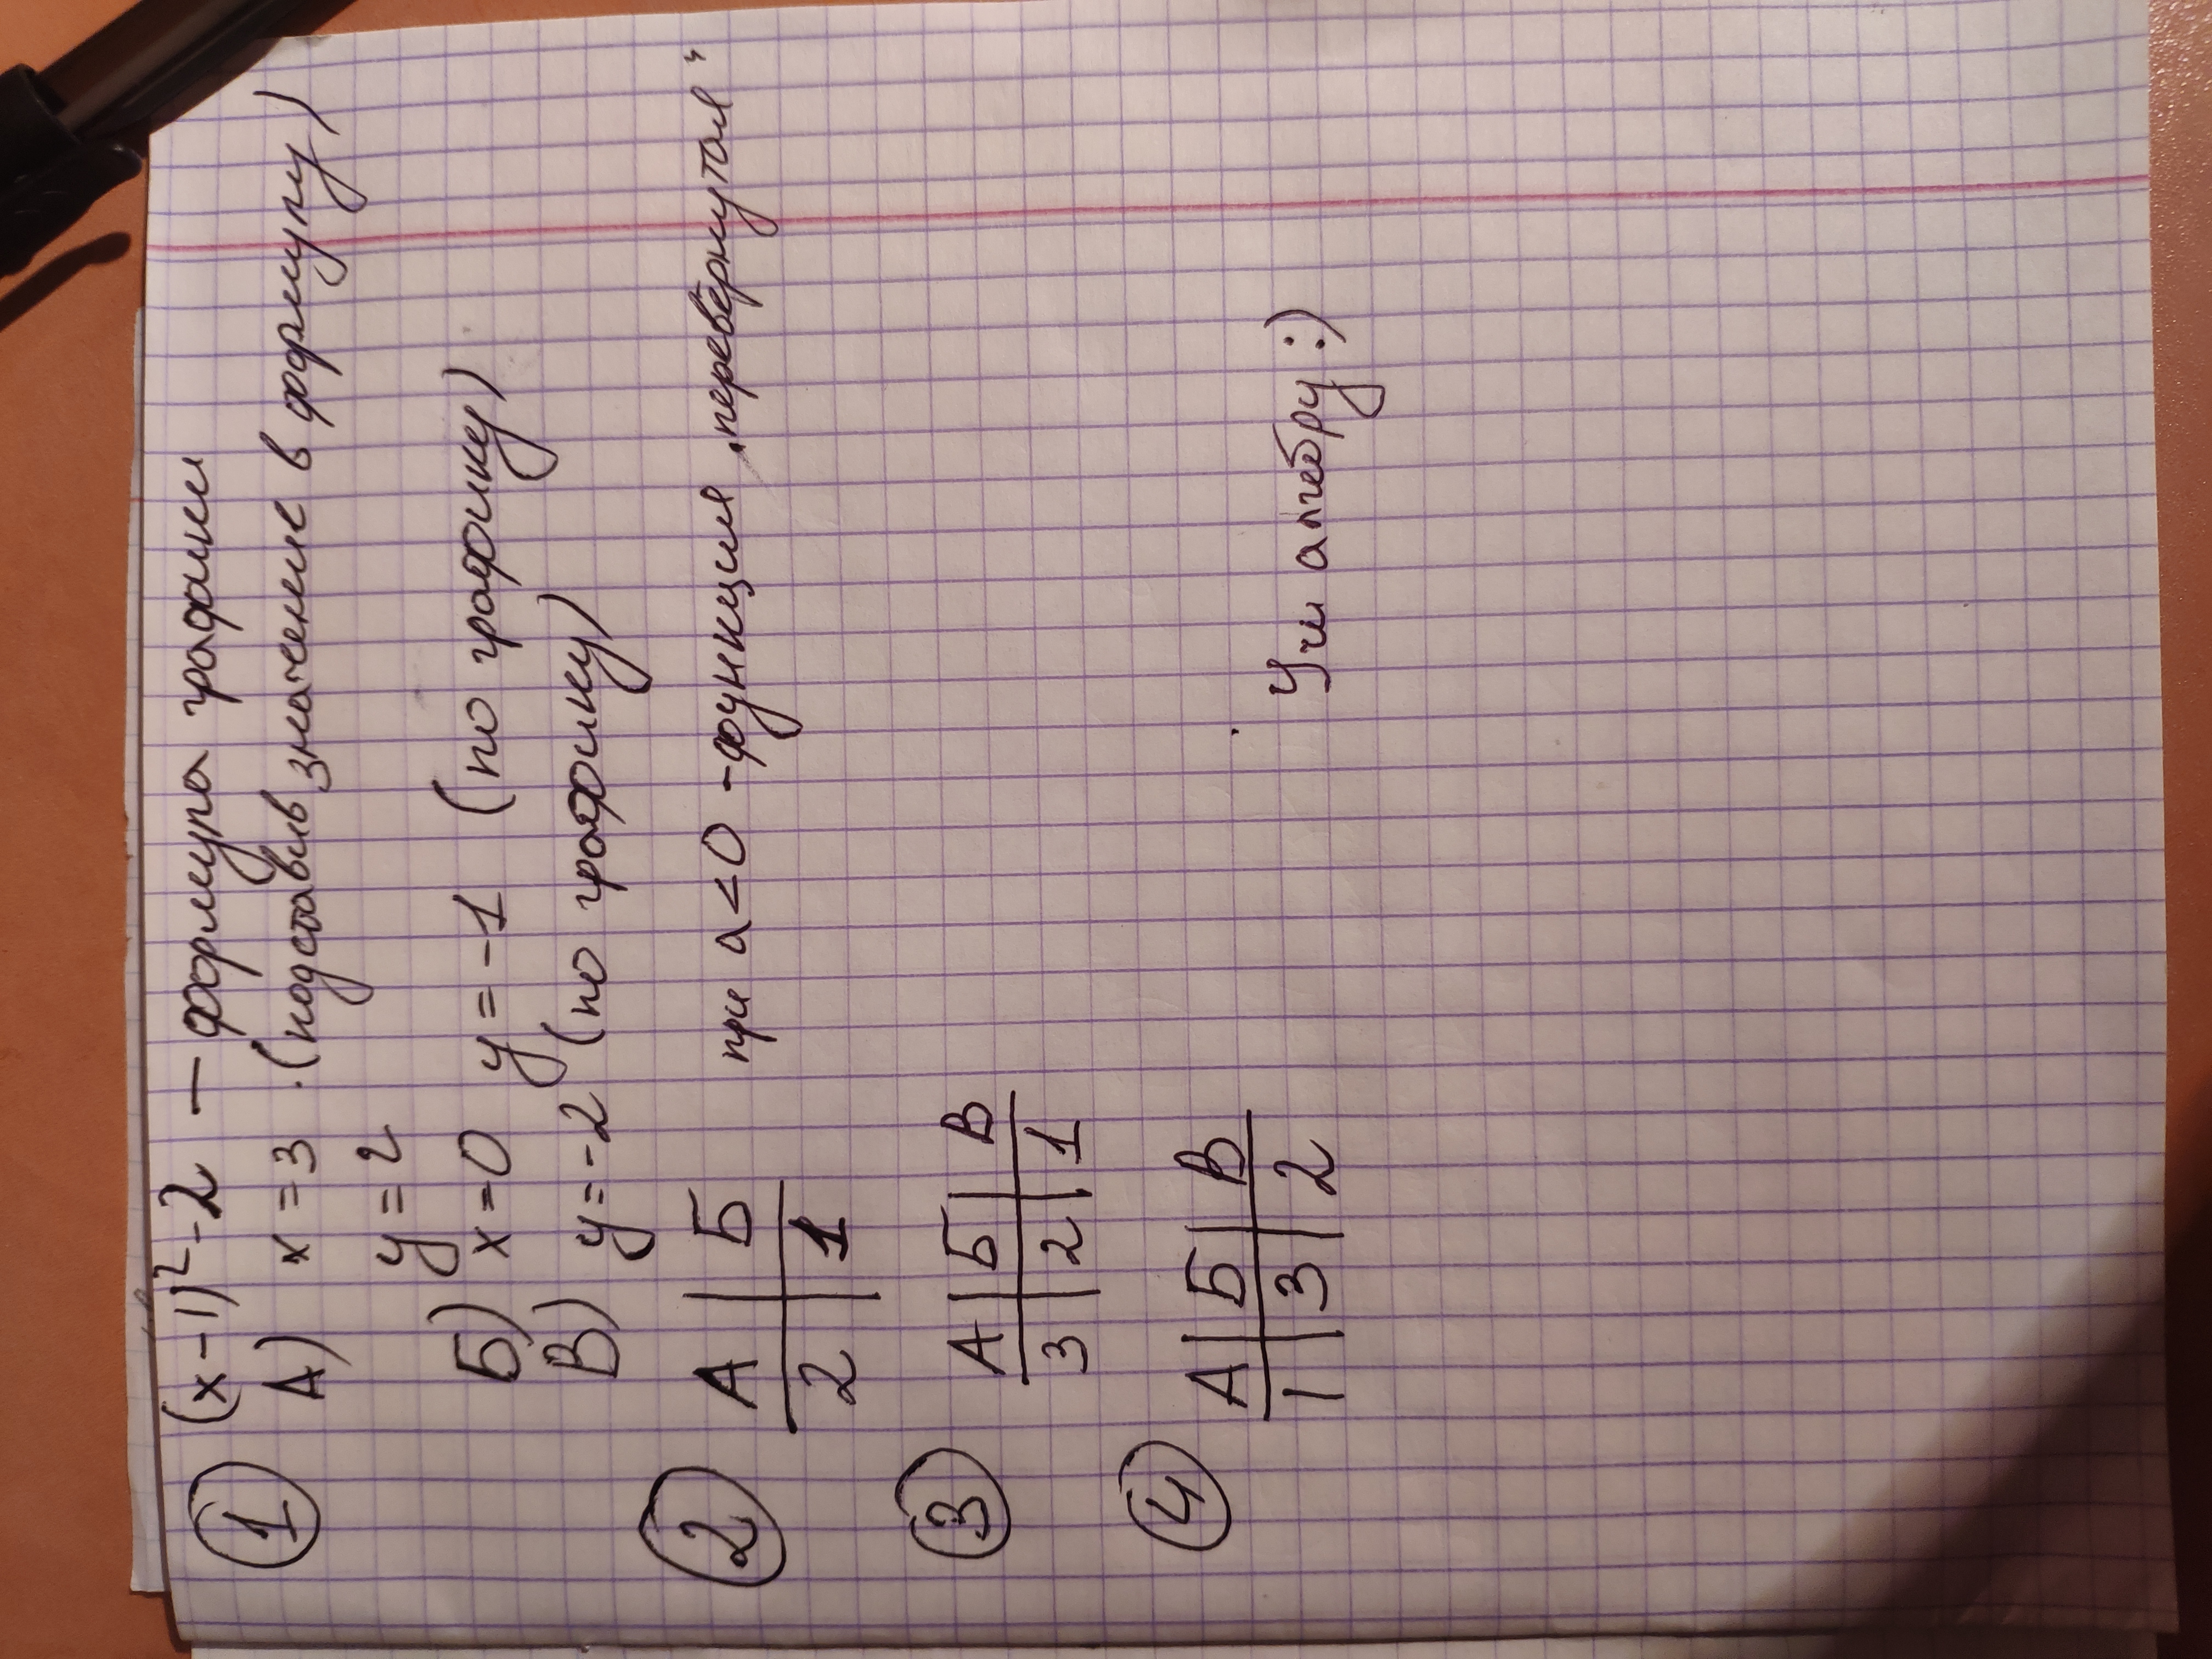 ① (x-1)²-2 — формула графика
А) x=3 (подставив значение в формулу)
y=2
Б) x=0 y=-1 (по графику)
В) y=-2 (по графику)
② А | Б при a<0 - функция „перевёрнутая"
2 | 1
③ А | Б | В
3 | 2 | 1
④ А | Б | В
1 | 3 | 2
Учи алгебру :)